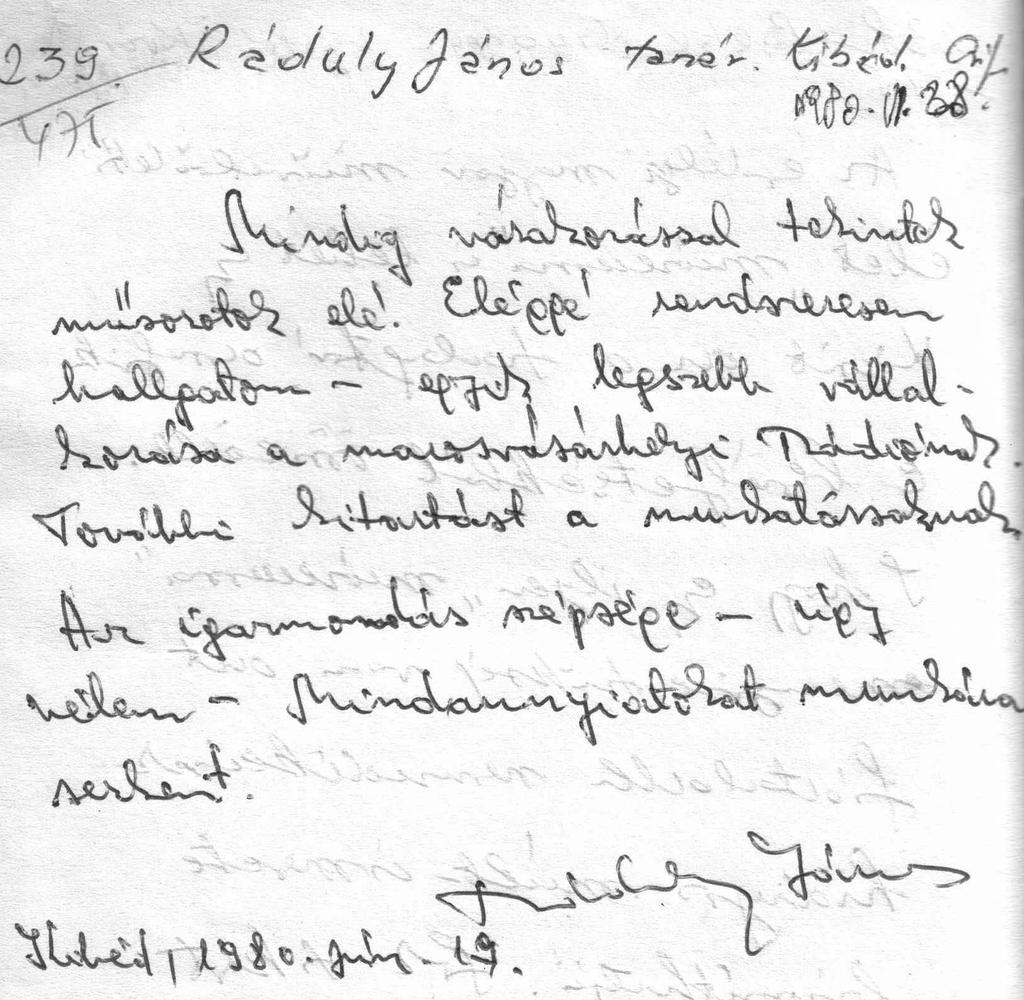 239. Ráduly János tanár. Kibéd.
471 1980. VI.
Mindig várakozással tekintek
műsorotok elé. Eléggé rendszeresen
hallgatom – egyik legszebb vállal-
kozása a marosvásárhelyi Rádiónak.
További kitartást a munkatársaknak.
Az igazmondás szépsége – úgy
vélem – Mindannyiatokat munkára
serkent.
Ráduly János
Kibéd, 1980. jún. 19.